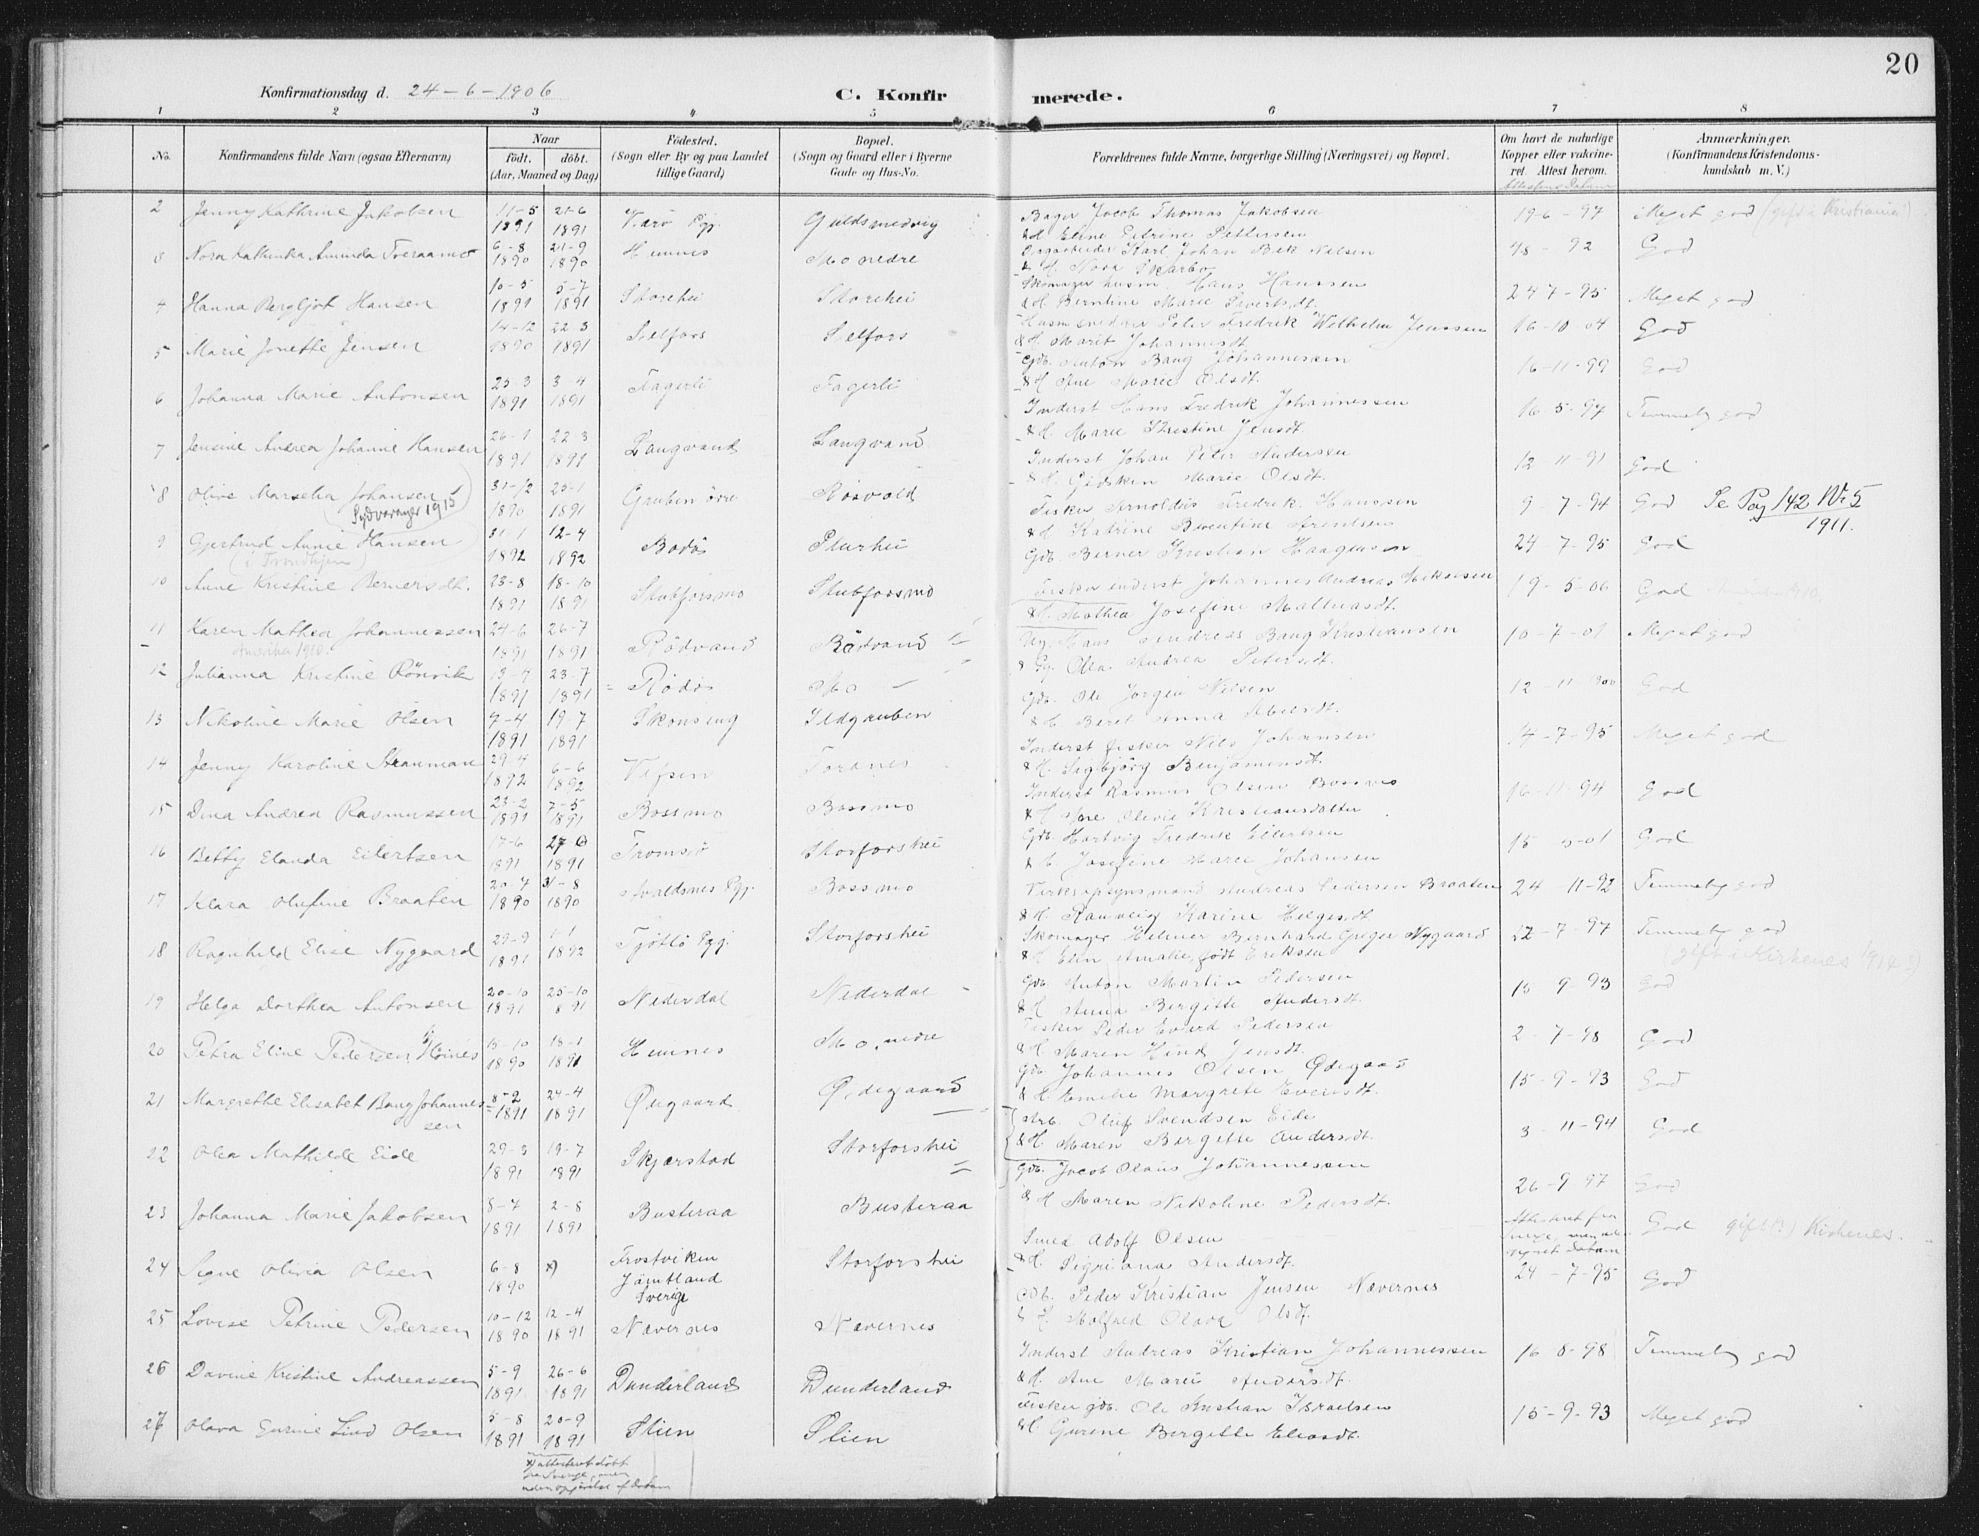 20
Konfirmationsdag d. 24-6-1906
C. Konfirmerede.
1 2 3 4 5 6 7 8
No. Konfirmandens fulde Navn (ogsaa Efternavn) Naar født. døbt. (Aar, Maaned og Dag) Födested. (Sogn eller By og paa Landet tillige Gaard) Bopæl. (Sogn og Gaard eller i Byerne Gade og Hus-No. Forældrenes fulde Navne, borgerlige Stilling (Næringsvei) og Bopæl. Om havt de naturlige Kopper eller vakcineret. Attest herom. Attestens Datum Anmærkninger. (Konfirmandens Kristendomskundskab m. V.)
2 Jenny Kathrine Jakobsen 11-5 1891 21-6 1891 Værö Pgj. Guldsmedvig Bager Jacob Thomas Jakobsen & H. Eline Petrine Pettersen 19-6-97 Meget god (gift i Kristiania)
3 Nora Kathinka Amunda Tveraamo 6-8 1890 21-9 1890 Hemnes Mo nedre Karl Johan Bek Nilsen & H. Nora Skarbo 92 God
4 Hanna Bergljot Hansen 10-5 1891 5-7 1891 Storehei Storehei Skomager husm. Hans Hanssen & H. Berntine Marie Sivertsdt. 24-7-95 Meget god
5 Marie Jonette Jensen 14-12 1890 22-3 1891 Selfors Selfors Peter Fredrik Wilhelm Jenssen & H. Marit Johannesdt. 16-10-04 God
6 Johanna Marie Antonsen 25-3 1891 3-4 1891 Fagerli Fagerli Gdb. Anton Bang Johannessen & H. Ane Marie Olsdt. 16-11-99 God
7 Jensine Andrea Johanne Hansen 26-1 1891 22-3 1891 Langvand Langvand Inderst Hans Fredrik Johannessen & H. Marie Kristine Jensdt. 16-5-97 Temmelig god
8 Olive Marselia Johansen Sydvaranger 1915 31-12 1890 25-1 1891 Gruben övre Rösvold Inderst Johan Peter Andersen & H. Gidsken Marie Olsdt. 12-11-91 God
9 Gjertrud Annie Hansen (i Trondhjem) 31-1 1892 12-4 1892 Bodö Storhei Fisker Arnoldus Fredrik Hanssen & H. Katrine Berentine Arentsen 9-7-94 God Se Pag 142 Nr 5 1911.
10 Anne Kristine Bernersdt. 23-8 1891 18-10 1891 Stubforsmo Stubforsmo Gdb. Berner Kristian Haagensen 24-7-95 God
11 Karen Mathea Johannessen Amerika 1910. 24-6 1891 26-7 1891 Rödvand Rödvand Fisker inderst Johannes Andreas Mikalsen & H. Mathea Josefine Mathiasdt. 19-5-06 God
12 Julianna Kristine Rönvik 13-7 1891 23-7 1891 Rödö Mo Ug. Hans Andreas Bang Kristiansen & Pg. Olea Andrea Petersdt. 10-7-01 Meget god
13 Nikoline Marie Olsen 7-4 1891 19-7 1891 Skonseng Ildgruben Gdb. Ole Jørgen Nilsen & H. Beret Anna 12-11-900 God
14 Jenny Karoline Strauman 29-4 1892 6-6 1892 Vefsen Toranes Inderst fisker Nils Johansen & H. Sigbjörg Benjaminsdt. 4-7-95 Meget god
15 Dina Andrea Rasmussen 23-2 1891 7-5 1891 Bossmo Bossmo Inderst Rasmus Olsen Bossmo & H. Ane Olivie Kristiansdatter 16-11-94 God
16 Betty Elanda Eilertsen 17-6 1891 27-6 1891 Tromsö Storforshei Gdb. Hartvig Fredrik Eilertsen & H. Josefine Marie Johansen God
17 Klara Olufine Braaten 20-7 1890 31-8 1890 Avaldsnes Pgj. Bossmo Andreas Pedersen Braaten & H. Rannveig Karine Helgesdt. 24-11-92 Temmelig god
18 Ragnhild Elise Nygaard 29-9 1891 1-1 1892 Tjöttö Pgj. Storforshei Skomager Helmer Bernhard Greger Nygaard & H. Elen Amalie, født Eriksen 22-7-97 Temmelig god (gift i Kirkenes 1914?)
19 Helga Dorthea Antonsen 20-10 1891 25-10 1891 Nederdal Nederdal Gdb. Anton Martin Pedersen & H. Anna Bergitte Andersdt. 15-9-93 God
20 Petra Eline Pedersen Höines 13-10 1890 18-1 1891 Hemnes Mo, nedre Fisker Peder Evard Pedersen & H. Maren Hind Jensdt. 2-7-98 God
21 Margrethe Elisabet Bang Johannessen 8-2 1891 24-4 1891 Øugaard Ødegaard Gdb. Johannes Olsen Ødegaard & H. Emelie Margrete Evensdt. 15-9-93 God
22 Olea Mathilde Eide 29-3 1891 19-7 1891 Skjerstad Storforshei Arb. Oluf Svendsen Eide & H. Maren Bergitte Andersdt. 3-11-94 God
23 Johanna Marie Jakobsen 8-7 1891 2-8 1891 Busteraa Busteraa Gdb. Jacob Olaus Johannessen & H. Maren Nikoline Pedersdt. 26-9-97 God
24 Signe Olivia Olsen 6-8 1890 x) Frostviken Jämtland Sverige Storforshei Smed Adolf Olsen & H. Sigriana Andersdt. Attesteret fra Sverige, men datum God gift (?) Kirkenes.
25 Lovise Petrine Pedersen 10-12 1890 12-4 1891 Nævernes Nævernes Gdb. Peder Kristian Jensen Nævernes & H. Molfred Olava Olsdt. 24-7-95 God
26 Davine Kristine Andreassen 5-9 1891 26-6 1891 Dunderland Dunderland Inderst Andreas Kristian Johannessen & H. Ane Marie Andersdt. 16-8-98 Temmelig god
27 Olava Gurine Lind Olsen 5-8 1891 20-9 1891 Stien Stien Fisker gdb. Ole Kristian Israelsen & H. Gurine Bergitte Eliasdt. 15-9-93 Meget god
x) attesteret døbt fra Sverige, men uden opgivelse af Datum